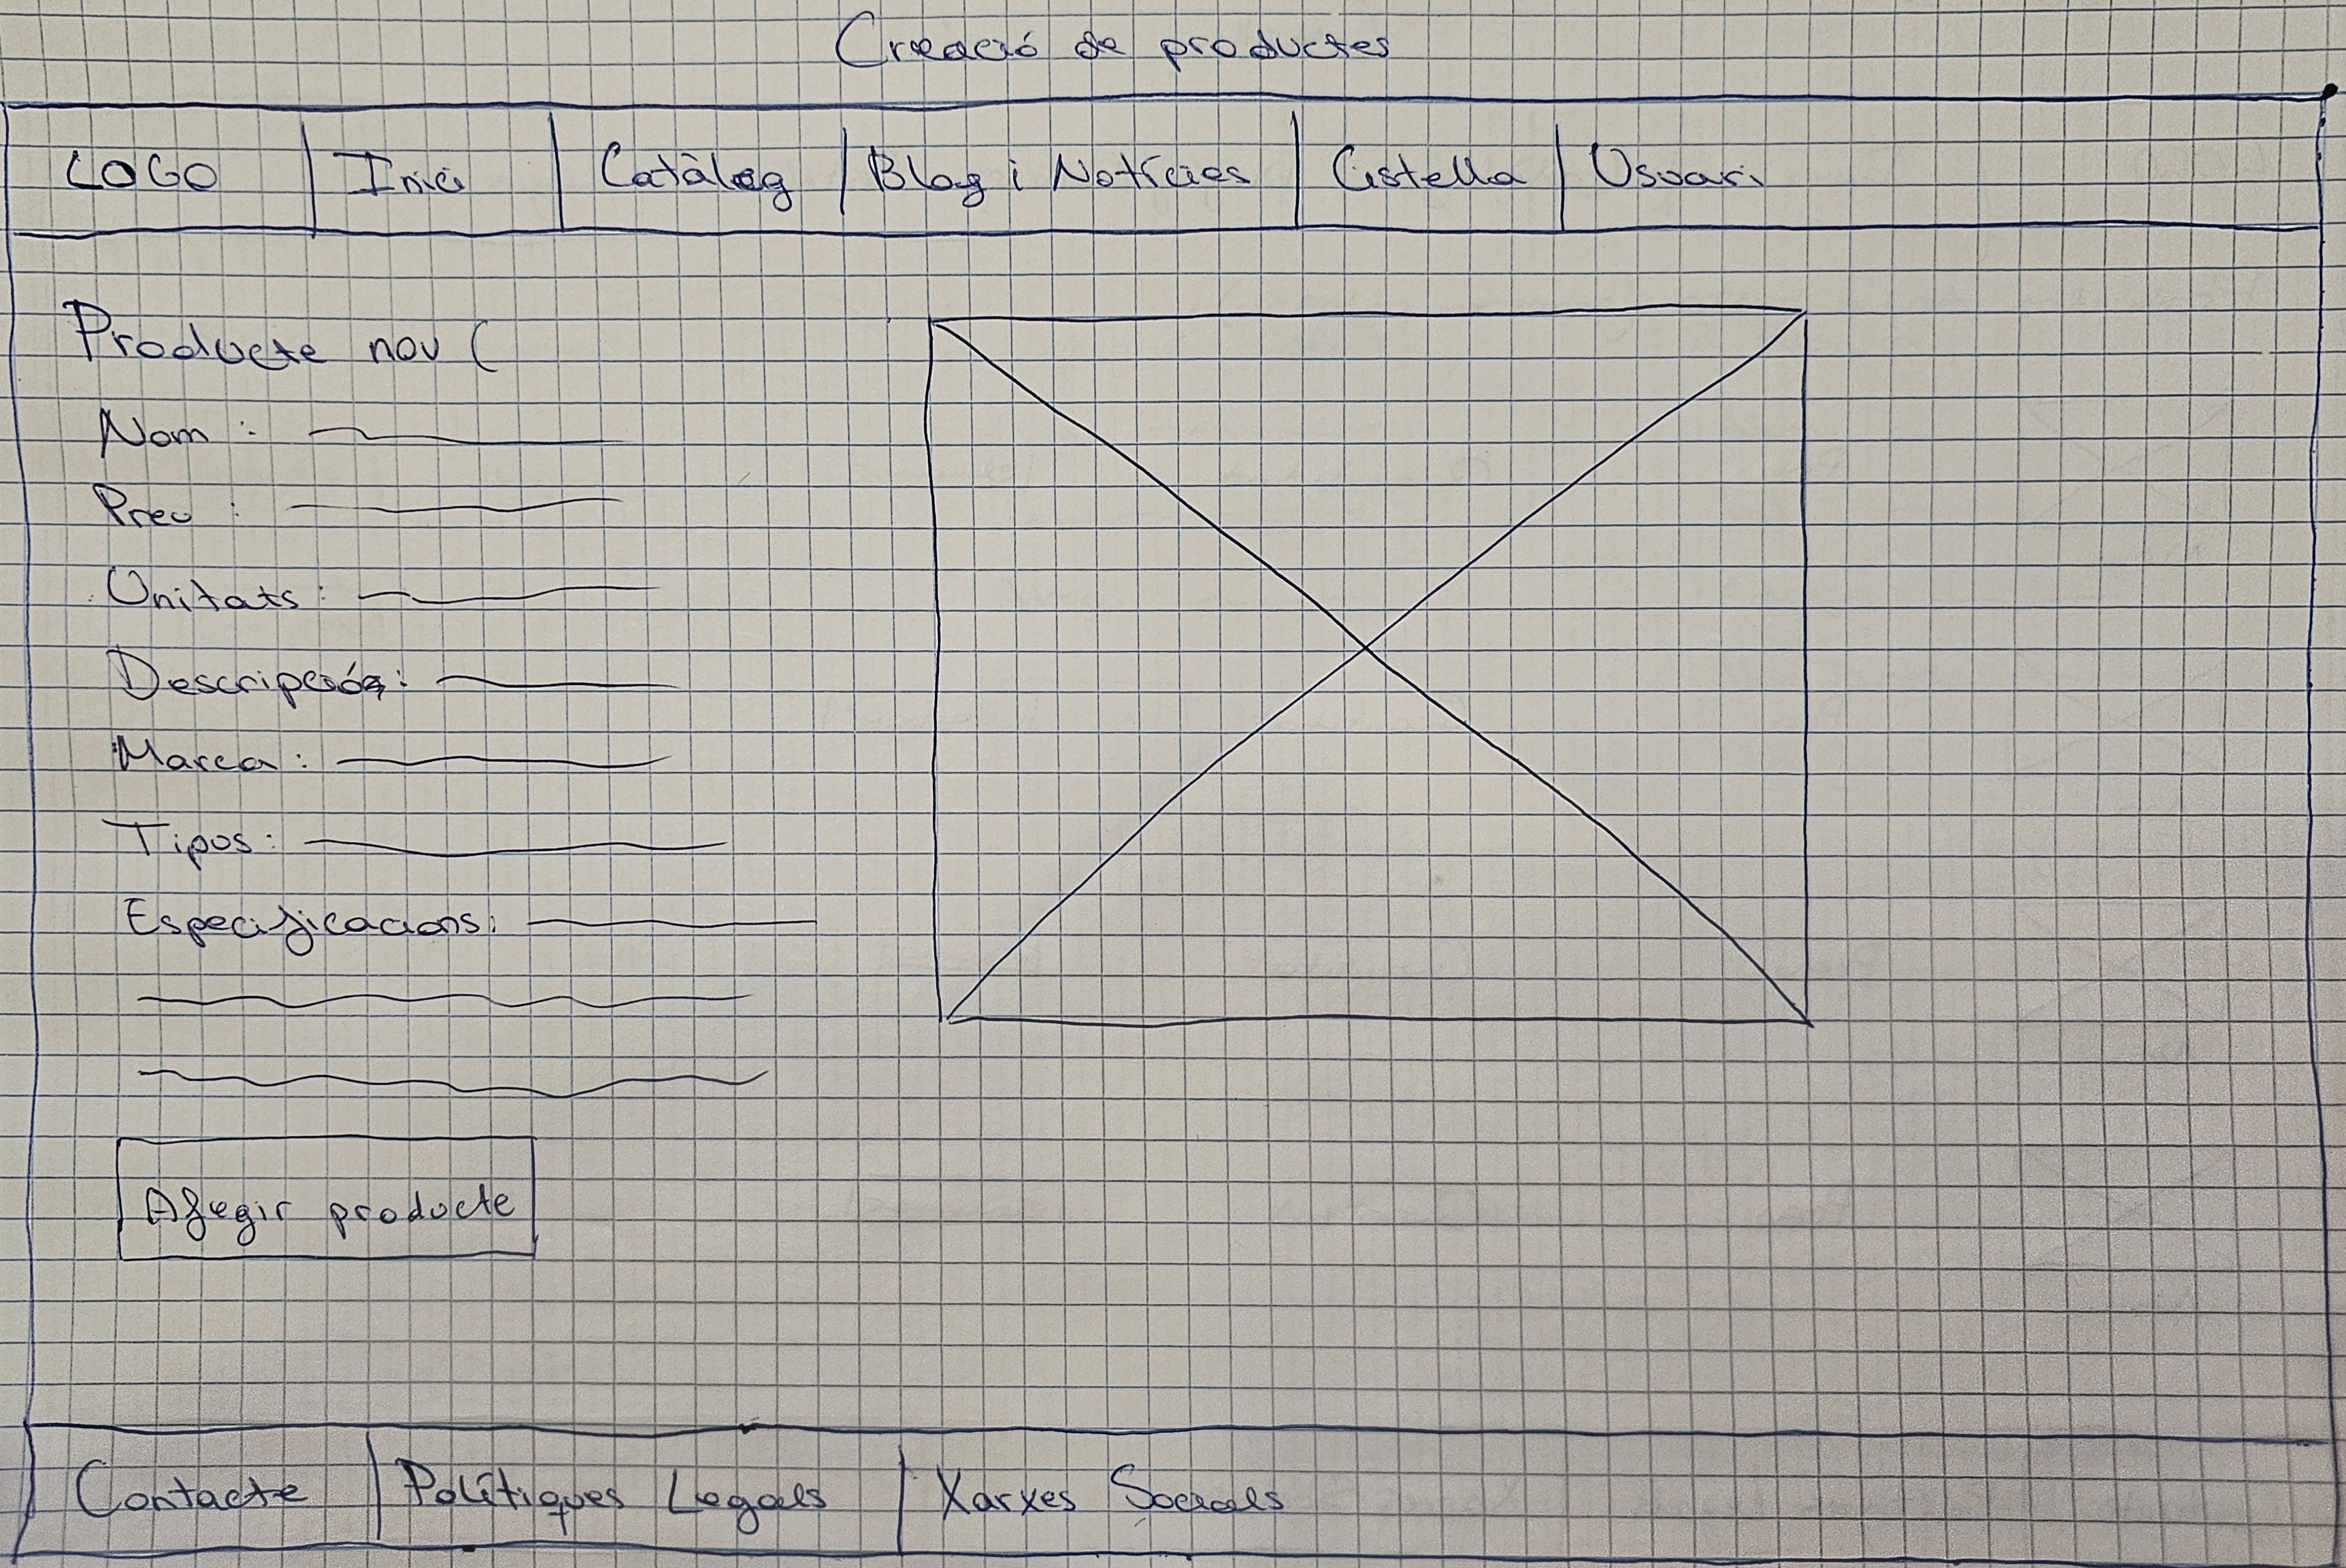 Creació de productes
LOGO Inici Catàleg Blog i Notícies Cistella Usuari
Producte nou (
Nom :
Preu :
Unitats :
Descripció :
Marca :
Tipos :
Especificacions :
Afegir producte
Contacte Polítiques Legals Xarxes Socials